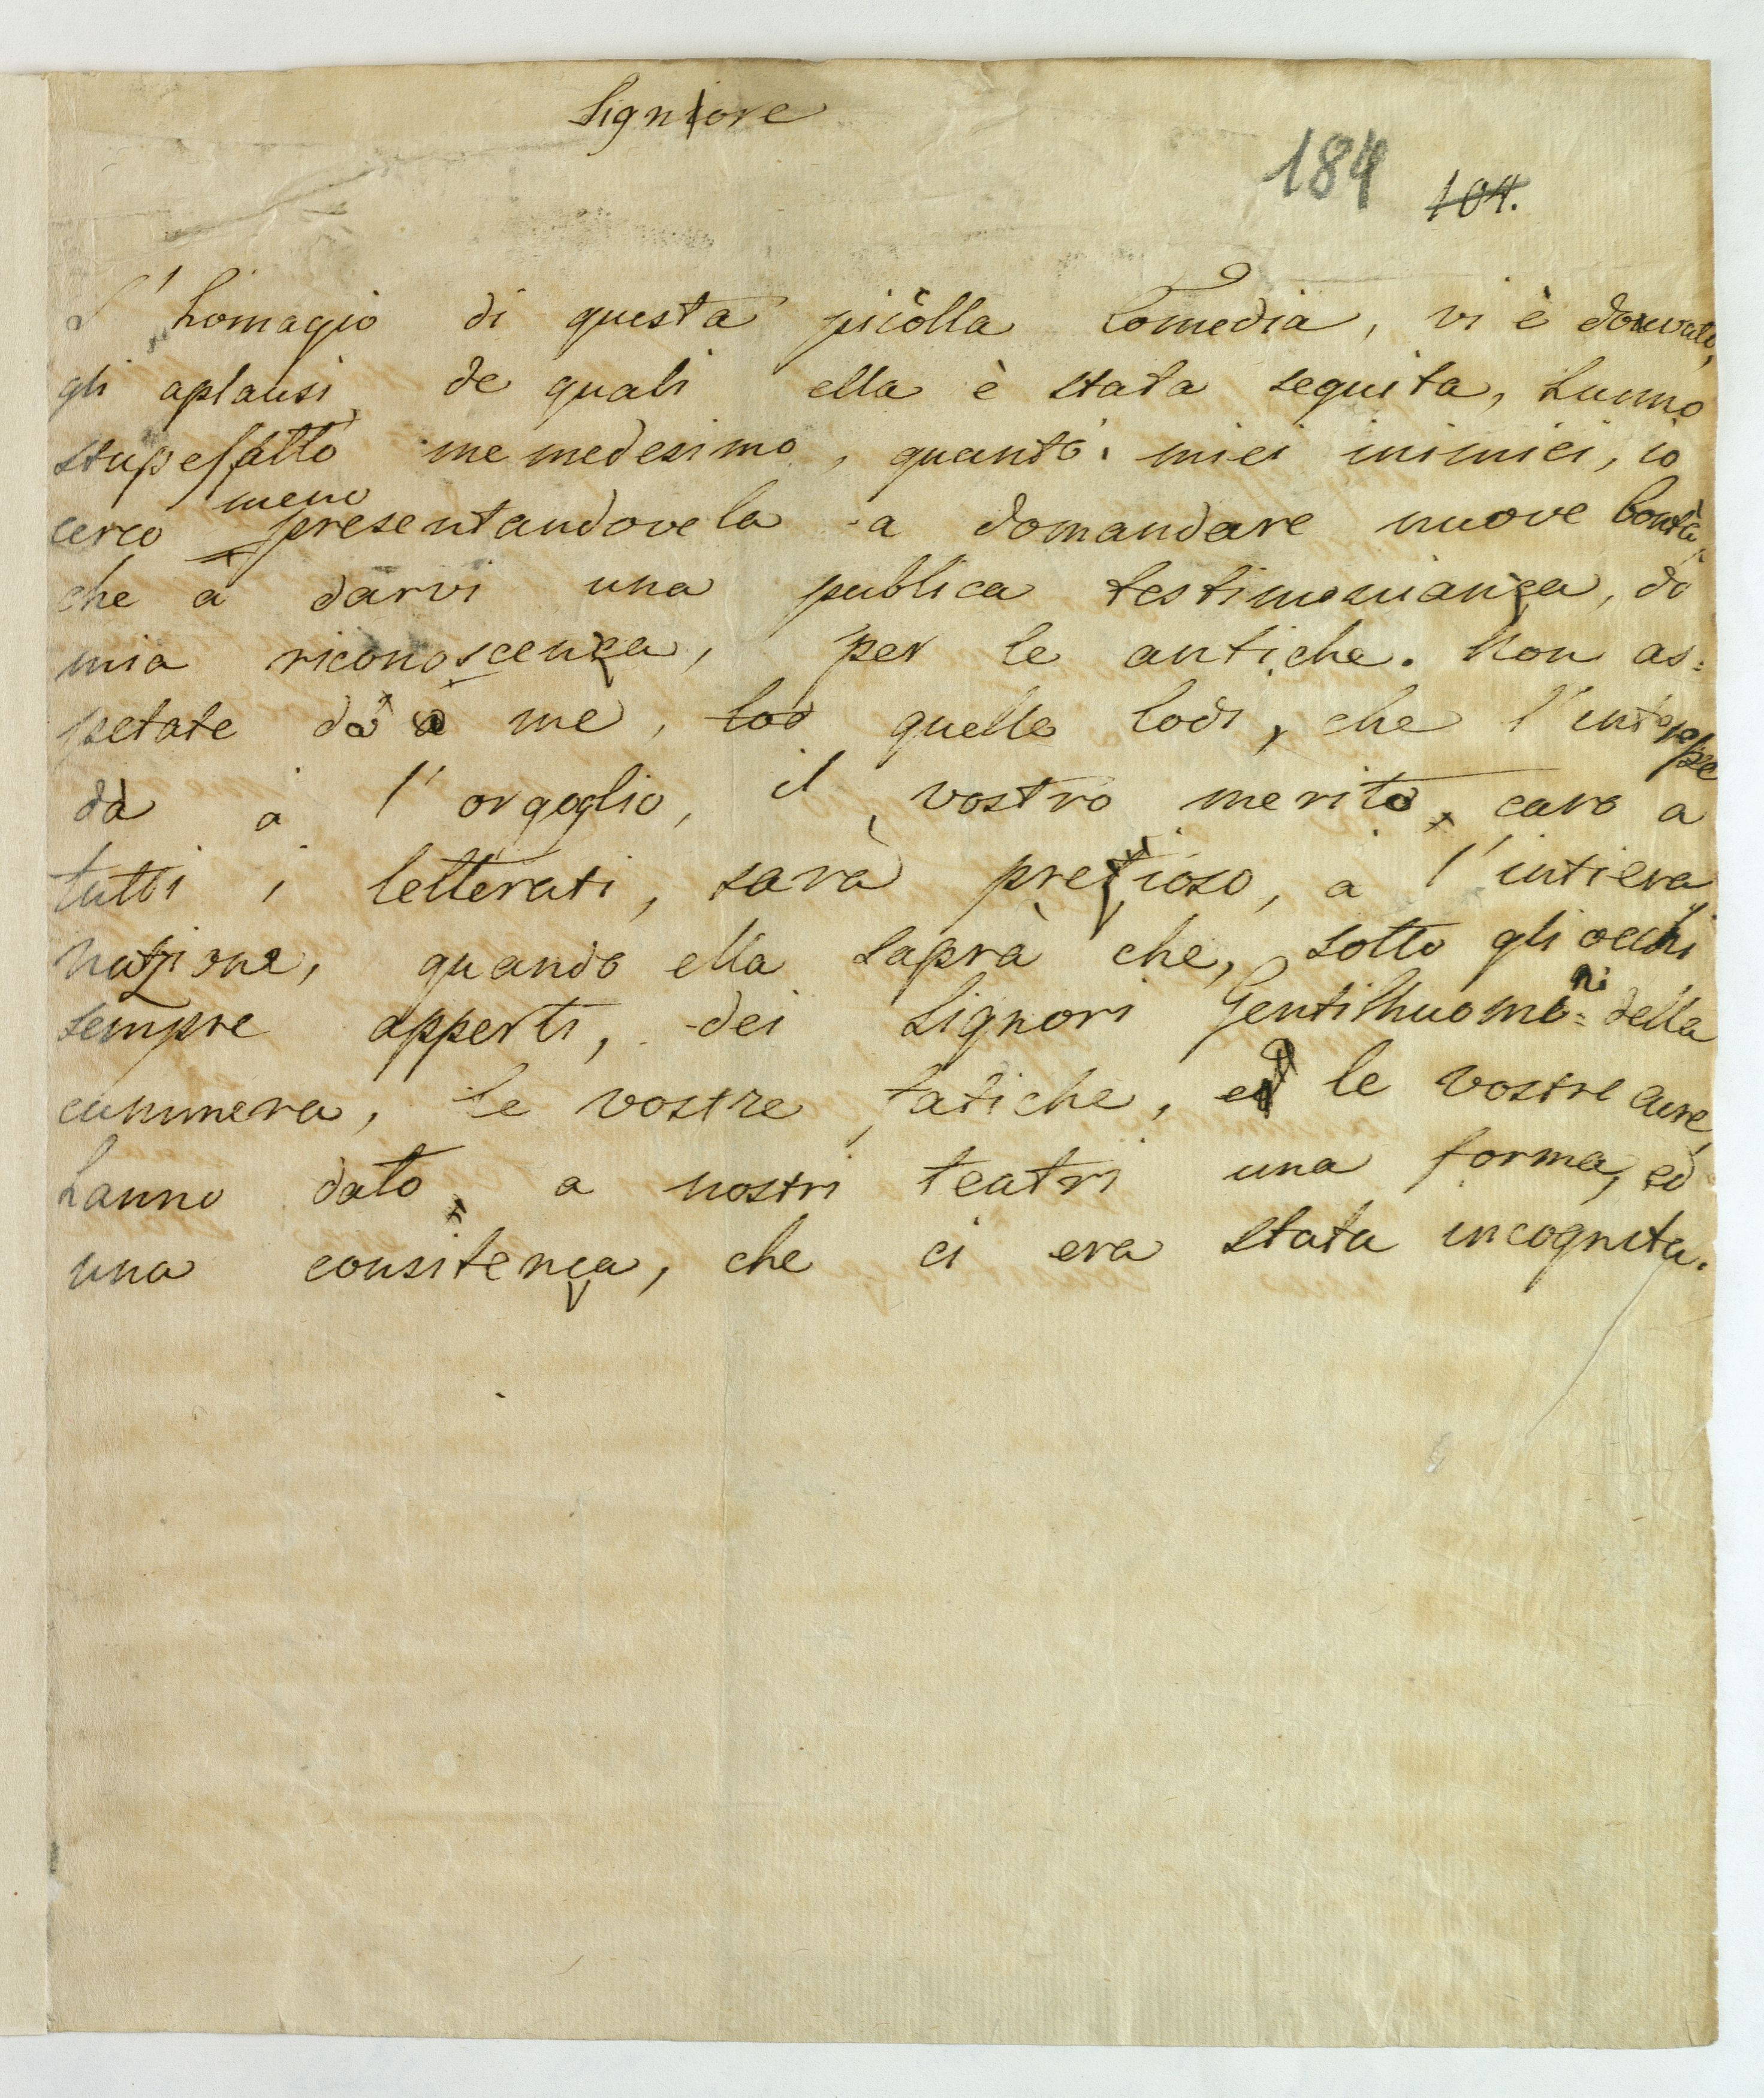 Signiore
184 104.
L'homagio di questa picolla Comedia, vi è douvato,
gli aplausi de quali ella è stata seguita, hanno
stupeffatto me medesimo, quanto i miei inimici, io
cerco meno presentandovela a domandare nuove bontà,
che a darvi una publica testimoniança, di
mia riconoscença, per le antiche. Non as=
petate da me, lod quelle lodi, che l'
da a l'orgoglio, il vostro merito, caro a
tutti i letterati, sarà pretioso, a l'intiera
nazione, quando ella saprà che, sotto gli occhi
sempre apperti, dei Signori Gentilhuomini della
cammera, le vostre fatiche, ed le vostre cure,
hanno dato, a nostri teatri una forma, ed
una consitença, che ci era stata incognita.